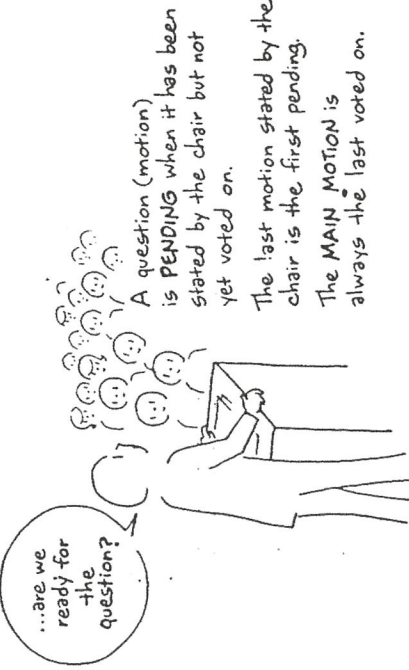 ...are we
ready for
the
question?
A question (motion)
is PENDING when it has been
stated by the chair but not
yet voted on.
The last motion stated by the
chair is the first pending.
The MAIN MOTION is
always the last voted on.